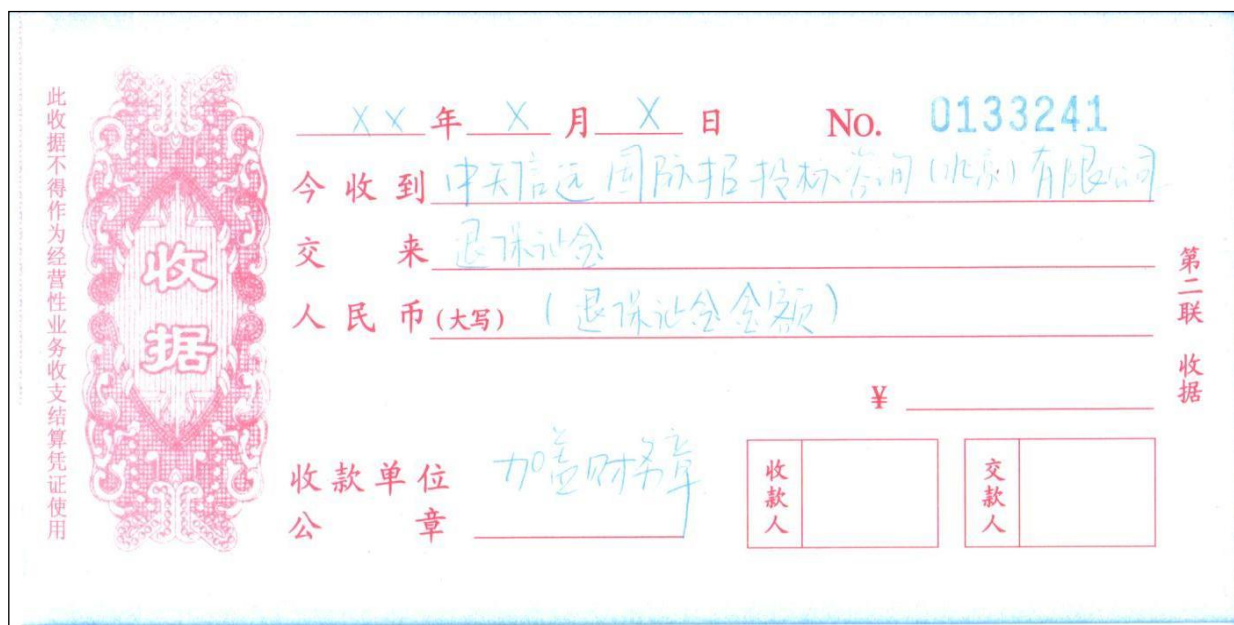 此收据不得作为经营性业务收支结算凭证使用
收据
XX年X月X日 No. 0133241
今收到中天信远国际招投标咨询(北京)有限公司
交来退保证金
人民币(大写)(退保证金金额)
¥
收款单位公章 加盖财务章
收款人
交款人
第二联 收据